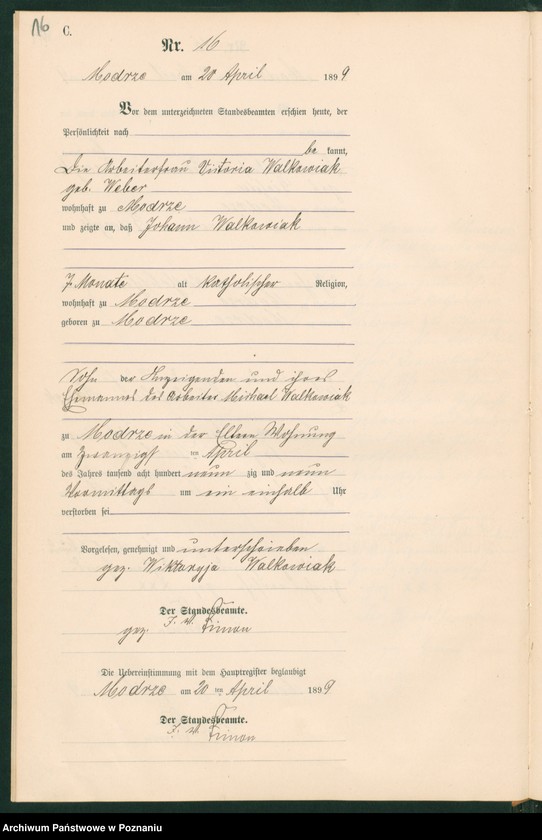 16
C.
Nr. 16
Modrze am 20 April 1899
Vor dem unterzeichneten Standesbeamten erschien heute, der
Persönlichkeit nach
be kannt,
Die Arbeiterfrau Victoria Walkowiak
geb. Weber
wohnhaft zu Modrze
und zeigte an, daß Johann Walkowiak
7 Monate alt katholischer Religion,
wohnhaft zu Modrze
geboren zu Modrze
Sohn der Anzeigenden und ihres
Ehemannes des Arbeiter Michael Walkowiak
zu Modrze in der Eltern Wohnung
am Zwanzigst ten April
des Jahres tausend acht hundert neun zig und neun
Vormittags um ein einhalb Uhr
verstorben sei
Vorgelesen, genehmigt und unterschrieben
gez. Wiktaryja Walkowiak
Der Standesbeamte.
I. V.
gez
Die Uebereinstimmung mit dem Hauptregister beglaubigt
Modrze am 20 ten April 1899
Der Standesbeamte.
I. V.
Archiwum Państwowe w Poznaniu